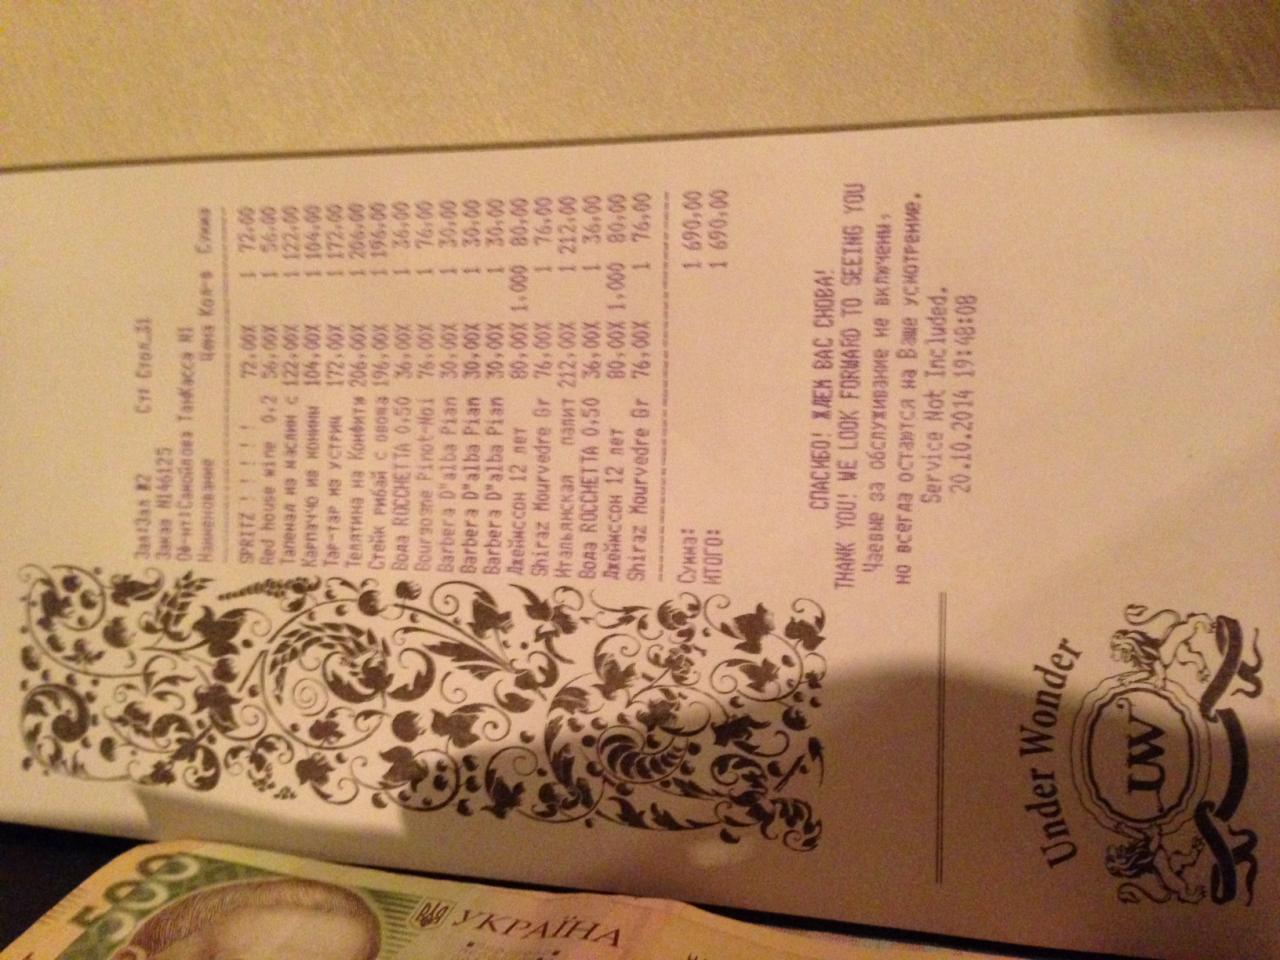 Зал:Зал №2 Стол.31
Заказ №146125
Оф-нт:Самойлова Тан Касса №1
Наименование Цена Кол-в Сумма
SPRITZ ! ! ! ! ! 72,00X 1 72,00
Red house wine 0,2 56,00X 1 56,00
Тапенад из маслин с 122,00X 1 122,00
Карпаччо из конины 104,00X 1 104,00
Тар-тар из устриц 172,00X 1 172,00
Телятина на Конфитю 206,00X 1 206,00
Стейк рибай с овоща 196,00X 1 196,00
Вода ROCCHETTA 0,50 36,00X 1 36,00
Bourgogne Pinot-Noi 76,00X 1 76,00
Barbera D"alba Pian 30,00X 1 30,00
Barbera D"alba Pian 30,00X 1 30,00
Barbera D"alba Pian 30,00X 1 30,00
Джеймссон 12 лет 80,00X 1,000 80,00
Shiraz Mourvedre Gr 76,00X 1 76,00
Итальянская палит 212,00X 1 212,00
Вода ROCCHETTA 0,50 36,00X 1 36,00
Джеймссон 12 лет 80,00X 1,000 80,00
Shiraz Mourvedre Gr 76,00X 1 76,00
Сумма: 1 690,00
ИТОГО: 1 690,00
СПАСИБО! ЖДЕМ ВАС СНОВА!
THANK YOU! WE LOOK FORWARD TO SEEING YOU
Чаевые за обслуживание не включены,
но всегда остаются на Ваше усмотрение.
Service Not Included.
20.10.2014 19:48:08
Under Wonder
UW
500
УКРАЇНА